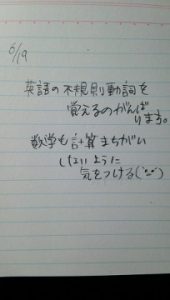 6/19
英語の不規則動詞を
覚えるのがんば
ります。
数学も計算まちがい
しないように
気をつける(˙ᵕ˙)